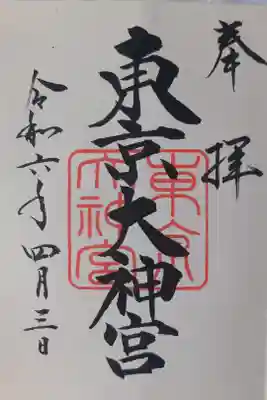 奉拝
東京大神宮
東京大神宮
令和六年四月三日